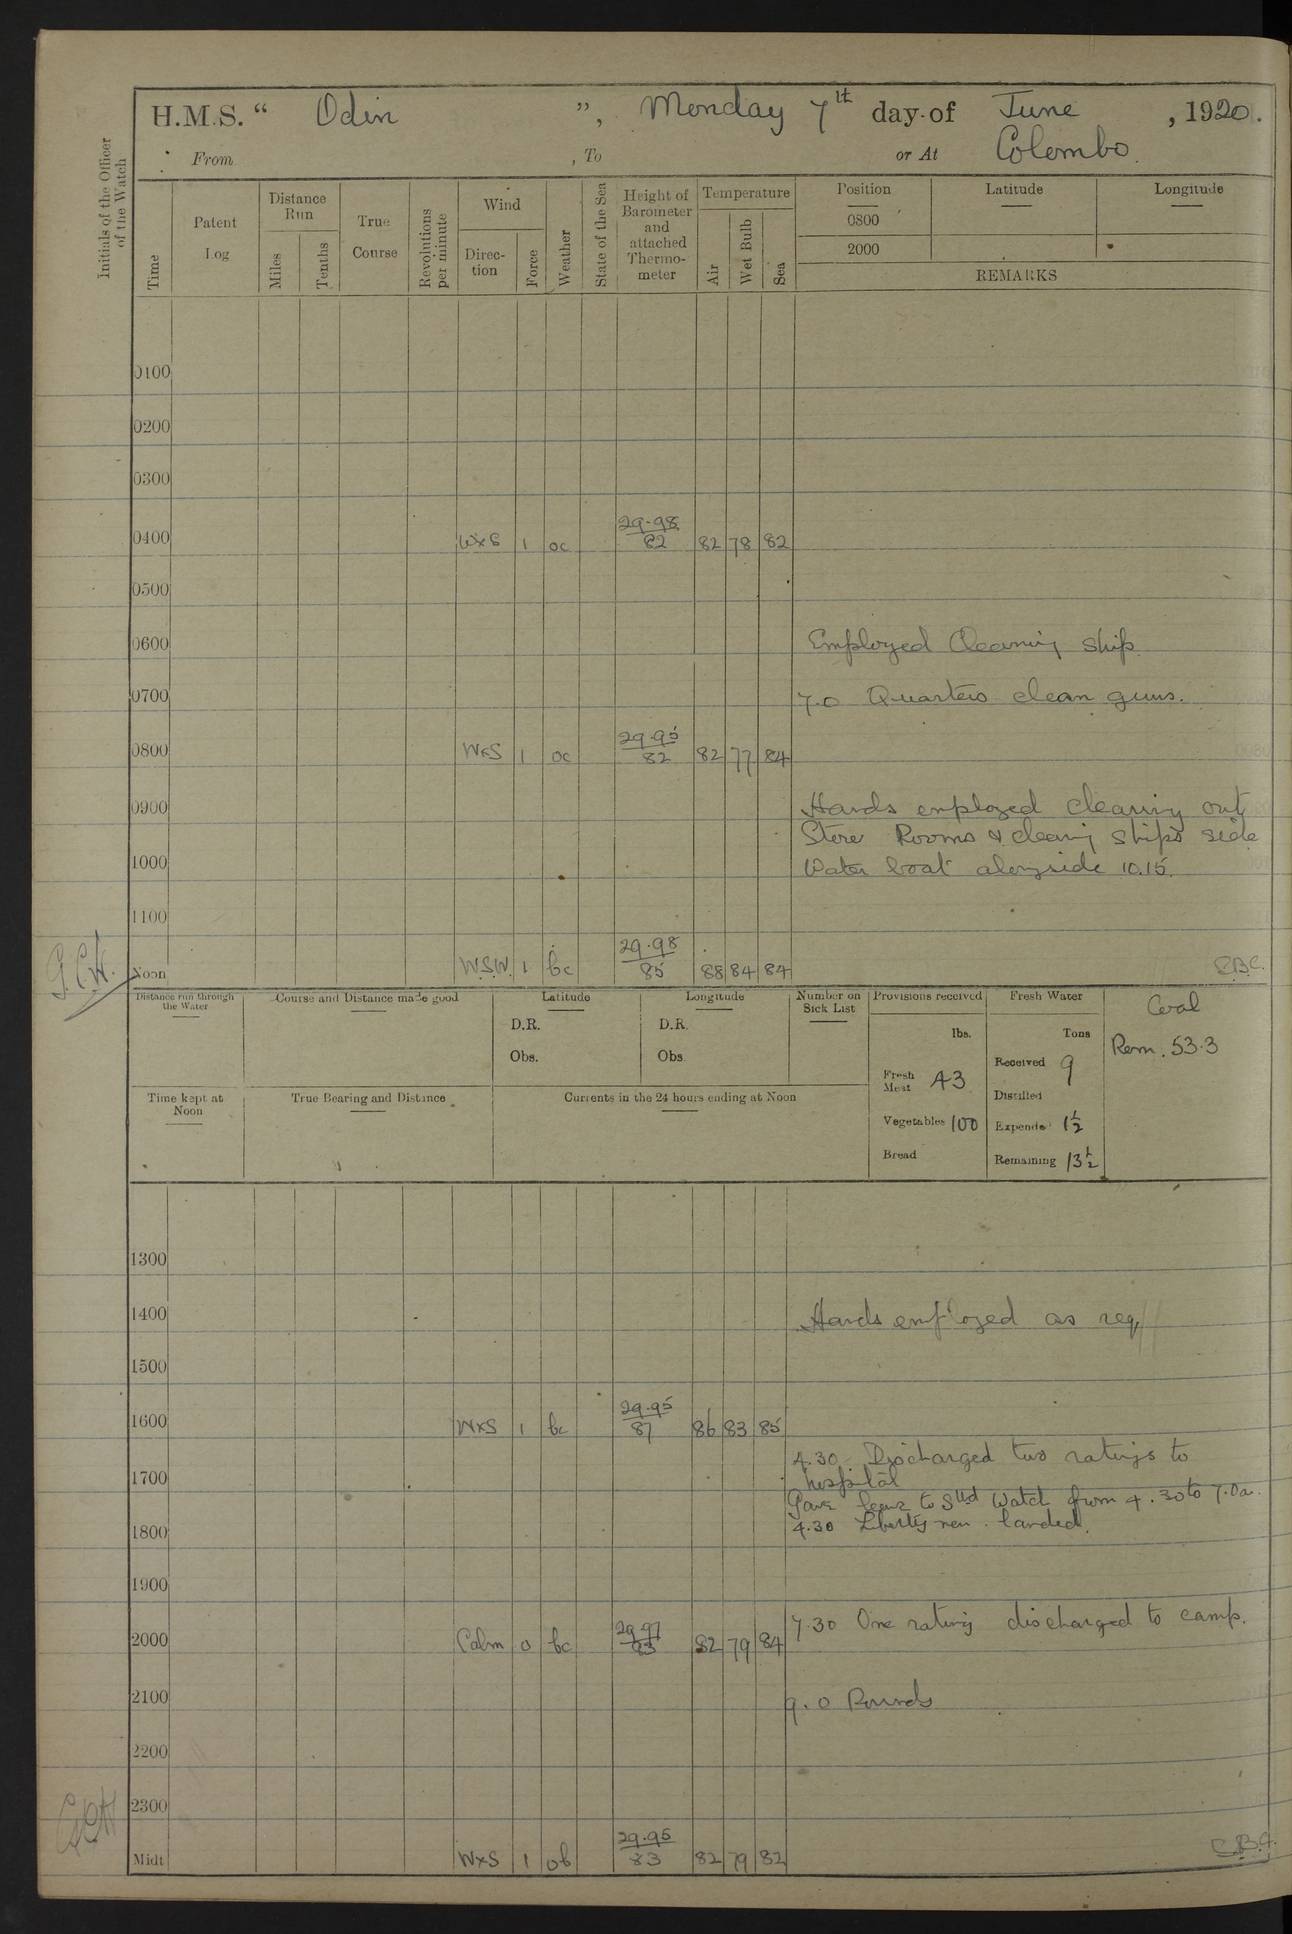 H.M.S. “ Odin ”, Monday 7th day of June, 1920.
From , To or At Colombo.
Initials of the Officer of the Watch
Time
Patent Log
Distance Run
Miles
Tenths
True Course
Revolutions per minute
Wind
Direction
Force
Weather
State of the Sea
Height of Barometer and attached Thermometer
Temperature
Air
Wet Bulb
Sea
Position Latitude Longitude
0800
2000
REMARKS
0100
0200
0300
0400 WxS 1 oc 29.98 82 82 78 82
0500
0600 Employed Cleaning Ship
0700 7.0 Quarters clean guns.
0800 WxS 1 oc 29.95 82 82 77 84
0900 Hands employed cleaning out
Store Rooms & cleaning ships side
1000 Water boat alongside 10.15.
1100
Noon W.S.W. 1 bc 29.98 85 88 84 84
Distance run through the Water
Course and Distance made good
Latitude
D.R.
Obs.
Longitude
D.R.
Obs.
Number on Sick List
Provisions received
lbs.
Fresh Meat 43
Vegetables 100
Bread
Fresh Water
Tons
Received 9
Distilled
Expended 1½
Remaining 13½
Coal
Rem. 53.3
Time kept at Noon
True Bearing and Distance
Currents in the 24 hours ending at Noon
1300
1400 Hands employed as req
1500
1600 WxS 1 bc 29.95 87 86 83 85
4.30 Discharged two ratings to
1700 hospital
Gave leave to Stbd Watch from 4.30 to 7.0a.
1800 4.30 Liberty men landed.
1900
7.30 One rating discharged to camp.
2000 Calm 0 bc 29.97 83 82 79 84
2100 9.0 Rounds
2200
2300
Midt WxS 1 ob 29.95 83 82 79 82